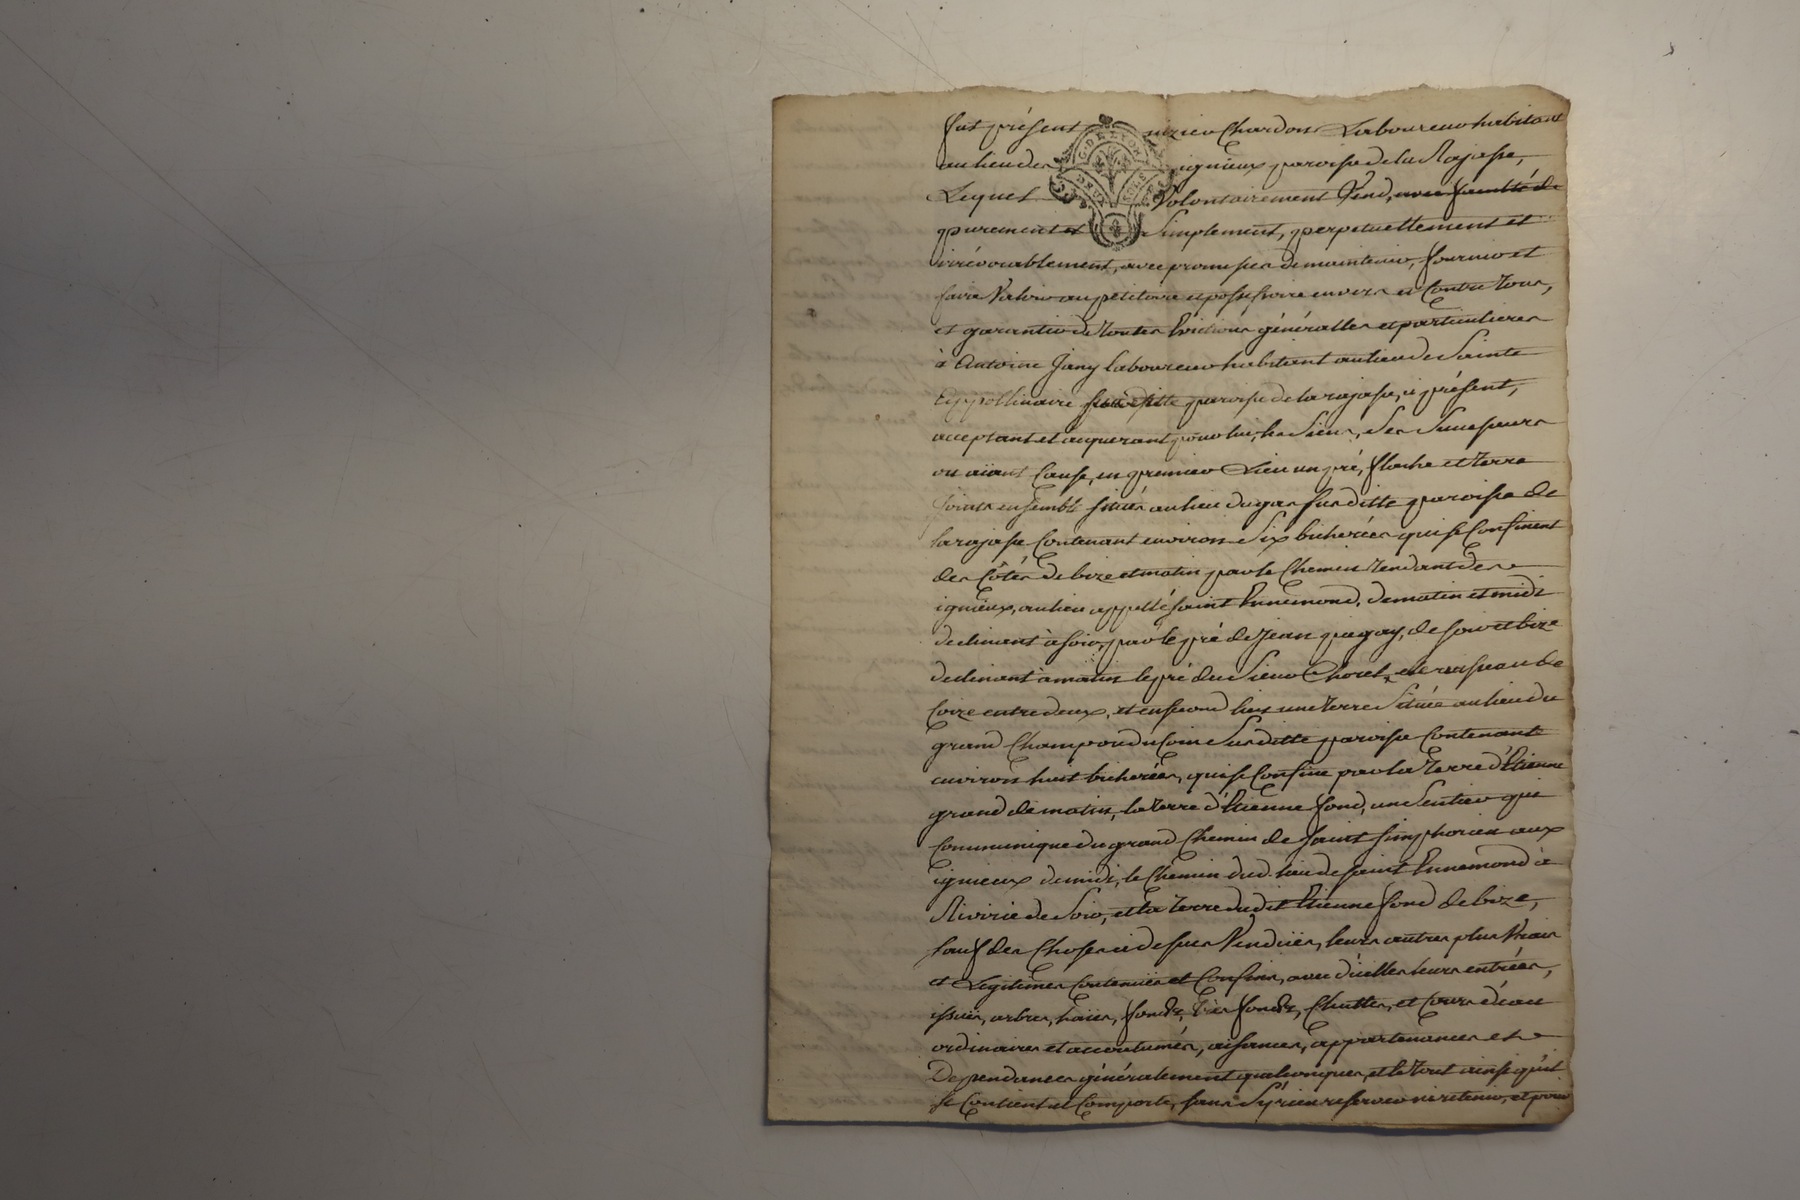 fut présent nizier Chardon Laboureur habitant
au lieu des ignieux paroisse de la Rajasse,
Lequel Volontairement Vend, avec faculté de
purement et Simplement, perpetuellement et
irrévocablement, avec promesses de maintenir, fournir et
faire Valoir au petitoire et possessoire envers et Contre Tous,
et garantir de Toutes Evictions généralles et particulieres
à Antoine Jany laboureur habitant au lieu de Sainte
Appollinaire susditte paroisse de la rajasse, ici présent,
acceptant et acquerant pour lui, les Siens, Ses Successeurs
ou aïant Cause, en premier Lieu un pré, flache et Terre
joints ensemble situés au lieu du gas susditte paroisse de
la rajasse Contenant environ Six bicherées qui se Confinent
des Côtés de bize et matin par le Chemin Tendant des
igneux, au lieu appellé saint Ennemond, de matin et midi
declinant à soir, par le pré de Jean guegay, de soir et bize
declinant à matin le pré du Sieur Thorel, et le ruisseau de
Coize entre deux, et en second lieu une Terre Située au lieu du
grand Champ ou du Coin Susditte paroisse Contenant
environ huit bicherées, qui se Confine par la Terre d'Etienne
grand de matin, la Terre d'Etienne fond, un Sentier qui
Communique du grand Chemin de saint simphorien aux
igneux de midi, le Chemin dud. lieu de saint Ennemond à
Riviriê de Soir, et la Terre dudit Etienne fond de bize,
sauf des Choses ci dessus Vendües, leurs autres plus Vrais
et Legitimes Contenües et Confins, avec d'icelles leurs entrées,
issües, arbres, haïes, fonds, Très fonds, Chuttes, et Cours d'eau
ordinaires et accoutumés, aisances, appartenances et
Dependances généralement quelconques, et le Tout ainsi qu'il
se Contient et Comporte, sans S'y rien reserver ni retenir, et pour